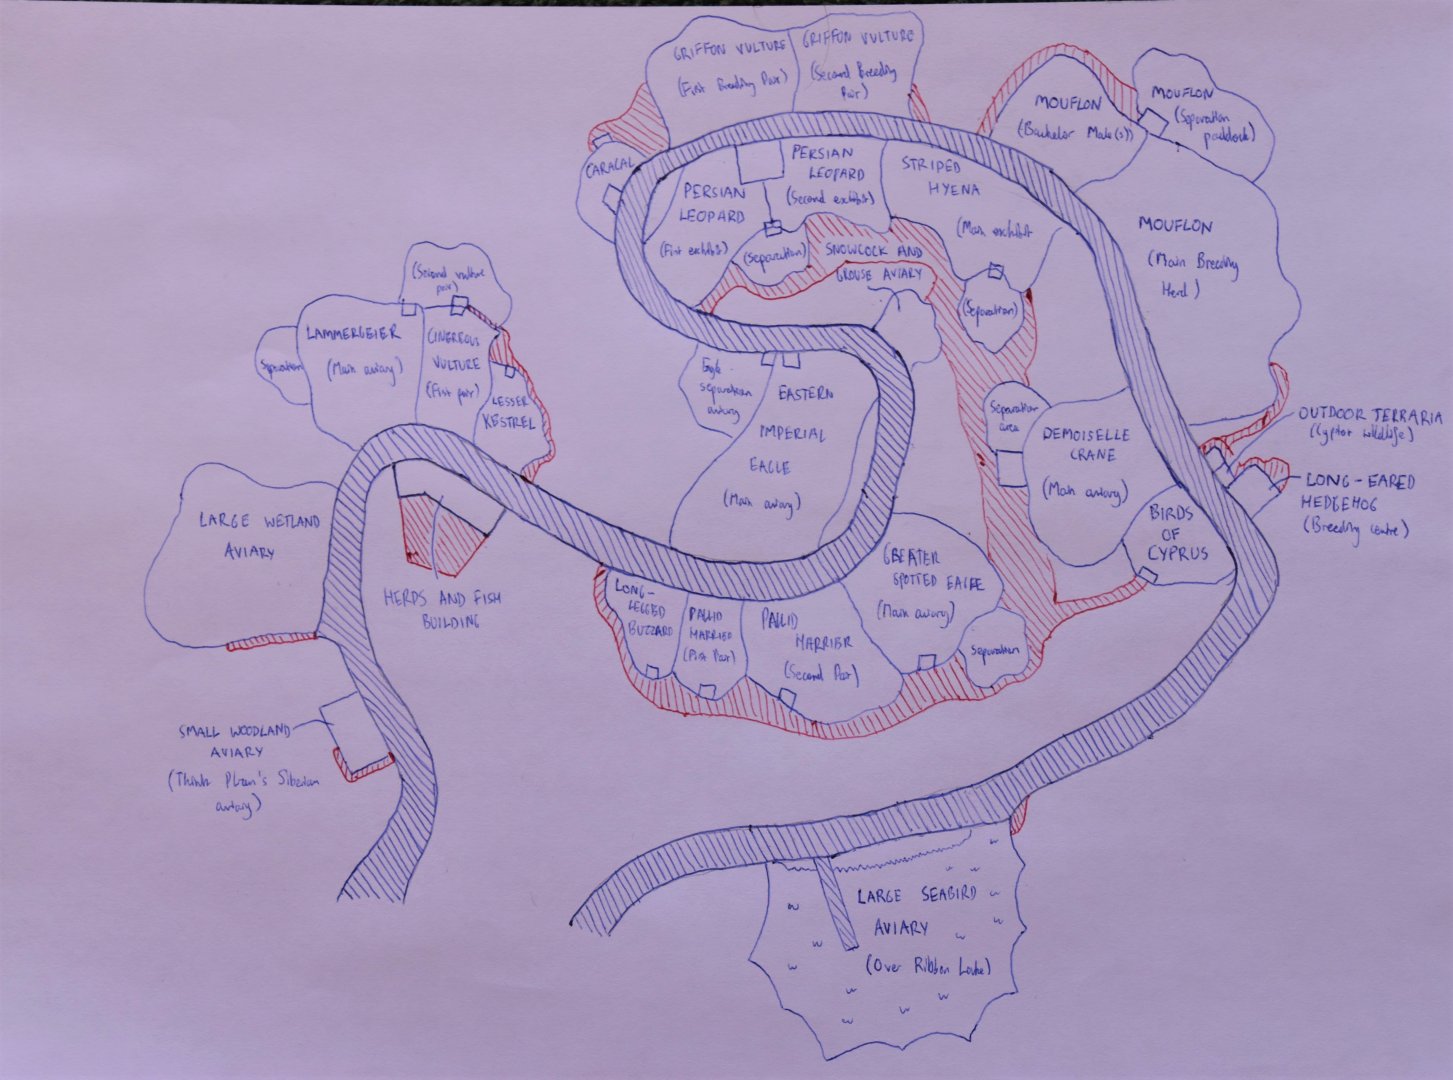 GRIFFON VULTURE
(First Breeding Pair)
GRIFFON VULTURE
(Second Breeding
Pair)
MOUFLON
(Bachelor Male(s))
MOUFLON
(Separation
paddock)
CARACAL
PERSIAN
LEOPARD
(First exhibit)
PERSIAN
LEOPARD
(Second exhibit)
(Separation)
STRIPED
HYENA
(Main exhibit
(Separation)
SNOWCOCK AND
GROUSE AVIARY
MOUFLON
(Main Breeding
Herd)
(Second vulture
pair)
LAMMERGEIER
(Main aviary)
Separation
CINEREOUS
VULTURE
(First pair)
LESSER
KESTREL
Eagle
separation
aviary
EASTERN
IMPERIAL
EAGLE
(Main aviary)
Separation
area
DEMOISELLE
CRANE
(Main aviary)
OUTDOOR TERRARIA
(Cypriot wildlife)
LONG-EARED
HEDGEHOG
(Breeding centre)
BIRDS
OF
CYPRUS
LARGE WETLAND
AVIARY
HERPS AND FISH
BUILDING
LONG-
LEGGED
BUZZARD
PALLID
HARRIER
(First Pair)
PALLID
HARRIER
(Second Pair)
GREATER
SPOTTED EAGLE
(Main aviary)
Separation
SMALL WOODLAND
AVIARY
(Think Plzen's Siberian
aviary)
LARGE SEABIRD
AVIARY
(Over Ribbon Lake)